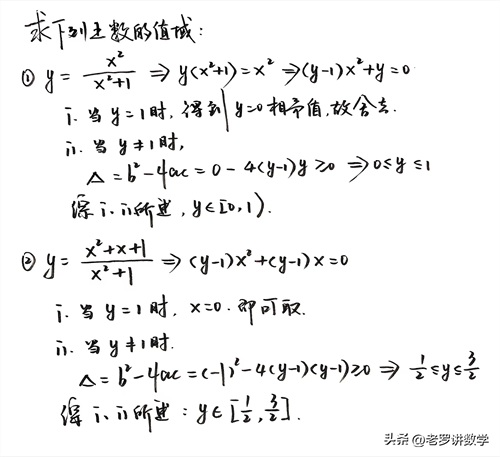 求下列函数的值域：
① y = x²/(x²+1) ⇒ y(x²+1)=x² ⇒(y-1)x²+y=0
i. 当 y=1时, 得到 y=0 相矛盾, 故舍去.
ii. 当 y≠1时,
Δ=b²-4ac=0-4(y-1)y≥0 ⇒0≤y≤1
综 i、ii所述, y∈[0,1).
② y= (x²+x+1)/(x²+1) ⇒ (y-1)x²+(y-1)x=0
i. 当 y=1时, x=0. 即可取.
ii. 当 y≠1时.
Δ=b²-4ac=(-1)²-4(y-1)(y-1)≥0 ⇒ 1/2≤y≤3/2
综 i、ii所述: y∈[1/2,3/2].
头条 @老罗讲数学